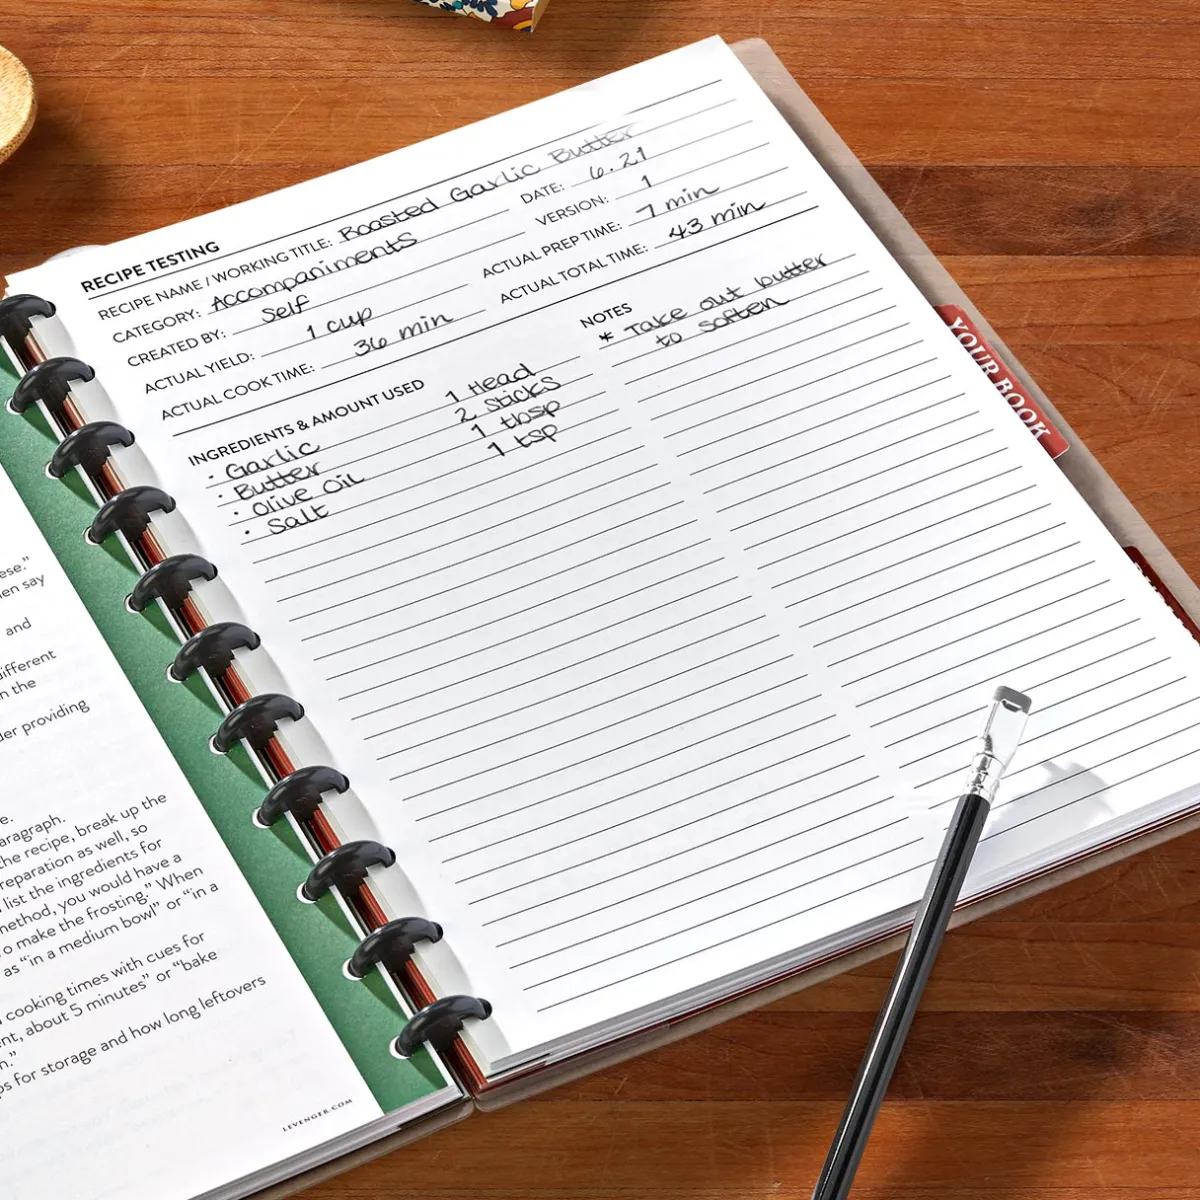 RECIPE TESTING
RECIPE NAME / WORKING TITLE: Roasted Garlic Butter
CATEGORY: Accompaniments
DATE: 6.21
CREATED BY: Self
VERSION: 1
ACTUAL YIELD: 1 cup
ACTUAL PREP TIME: 7 min
ACTUAL COOK TIME: 36 min
ACTUAL TOTAL TIME: 43 min
INGREDIENTS & AMOUNT USED
• Garlic 1 Head
• Butter 2 sticks
• Olive Oil 1 tbsp
• Salt 1 tsp
NOTES
* Take out butter
to soften
YOUR BOOK
ese.”
en say
and
different
n the
der providing
e.
aragraph.
the recipe, break up the
reparation as well, so
list the ingredients for
method, you would have a
o make the frosting.” When
as “in a medium bowl” or “in a
cooking times with cues for
ent, about 5 minutes” or “bake
n.”
ps for storage and how long leftovers
LEVENGER.COM